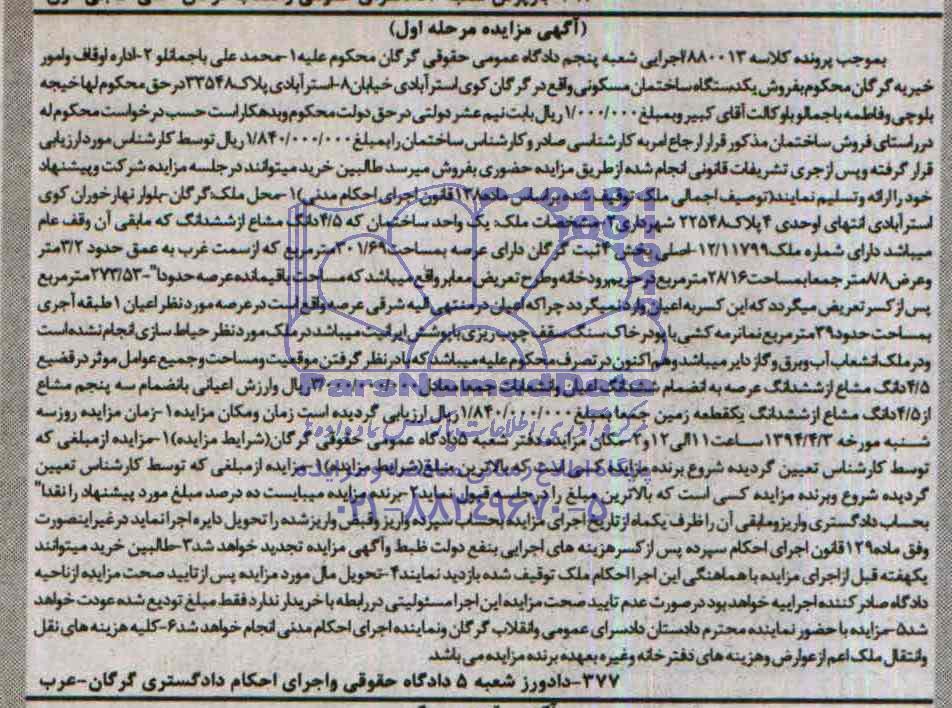 (آگهی مزایده مرحله اول)
بموجب پرونده کلاسه ۸۸۰۰۱۳اجرایی شعبه پنجم دادگاه عمومی حقوقی گرگان محکوم علیه۱-محمد علی باجمانلو ۲-اداره اوقاف وامور
خیریه گرگان محکوم بفروش یکدستگاه ساختمان مسکونی واقع در گرگان کوی استرآبادی خیابان۸-استرآبادی پلاک۲۲۵۴۸در حق محکوم لها خیجه
بلوچی وفاطمه باجمالو با وکالت آقای کبیر وبمبلغ ۱/۰۰۰/۰۰۰ ریال بابت نیم عشر دولتی در حق دولت محکوم وبدهکار است حسب درخواست محکوم له
در راستای فروش ساختمان مذکور قرار ارجاع امر به کارشناسی صادر و کارشناس ساختمان را بمبلغ ۱/۸۴۰/۰۰۰/۰۰۰ ریال توسط کارشناس مورد ارزیابی
قرار گرفته وپس از جری تشریفات قانونی انجام شده از طریق مزایده حضوری بفروش میرسد طالبین خرید میتوانند در جلسه مزایده شرکت وپیشنهاد
خود را ارائه و تسلیم نمایند(توصیف اجمالی ملک توقیف شده براساس ماده۱۳۸ قانون اجرای احکام مدنی)۱-محل ملک:گرگان-بلوار نهارخوران کوی
استرآبادی انتهای اوحدی ۴پلاک۲۲۵۴۸ شهرداری۲-مشخصات ملک: یک واحد ساختمان که ۴/۵دانگ مشاع از ششدانگ که مابقی آن وقف عام
میباشد دارای شماره ملک۱۲/۱۱۷۹۹-اصلی بخش ۴ثبت گرگان دارای عرصه بمساحت۳۰۱/۶۹مترمربع که ازسمت غرب به عمق حدود ۳/۲متر
وعرض۸/۸متر جمعا بمساحت۲۸/۱۶مترمربع در حریم رودخانه وطرح تعریض معابر واقع میباشد که مساحت باقیمانده عرصه حدودا"-۲۷۳/۵۳مترمربع
پس از کسر تعریض میگردد که این کسر به اعیان وارد نمیگردد چرا که اعیان در منتهی الیه شرقی عرصه واقع است در عرصه مورد نظر اعیان ۱طبقه آجری
بمساحت حدود۳۹متر مربع نما نرمه کشی با پودر خاک سنگ سقف چوب ریزی با پوشش ایرانیت میباشد در ملک مورد نظر حیاط سازی انجام نشده است
ودر ملک انشعاب آب وبرق و گاز دایر میباشد وهم اکنون در تصرف محکوم علیه میباشد که با در نظر گرفتن موقعیت ومساحت وجمیع عوامل موثر در قضیع
۴/۵دانگ مشاع از ششدانگ عرصه به انضمام ششدانگ اعیان وانشعابات جمعا معادل ریال وارزش اعیانی بانضمام سه پنجم مشاع
از ۴/۵دانگ مشاع از ششدانگ یکقطعه زمین جمعا مبلغ ۱/۸۴۰/۰۰۰/۰۰۰ریال ارزیابی گردیده است زمان ومکان مزایده۱-زمان مزایده روز سه
شنبه مورخه ۱۳۹۴/۴/۲ساعت۱۱الی۱۲ و۲-مکان مزایده دفتر شعبه ۵دادگاه عمومی حقوقی گرگان(شرایط مزایده)۱-مزایده ازمبلغی که
توسط کارشناس تعیین گردیده شروع برنده مزایده کسی است که بالاترین مبلغ(شرایط مزایده)۱-مزایده ازمبلغی که توسط کارشناس تعیین
گردیده شروع وبرنده مزایده کسی است که بالاترین مبلغ را در جلسه قبول نماید۲-برنده مزایده میبایست ده درصد مبلغ مورد پیشنهاد را نقدا"
بحساب دادگستری واریز ومابقی آن را ظرف یکماه از تاریخ اجرای مزایده بحساب سپرده واریز وقبض واریز شده را تحویل دایره اجرا نماید در غیر اینصورت
وفق ماده۱۲۹قانون اجرای احکام سپرده پس از کسر هزینه های اجرایی بنفع دولت ظبط وآگهی مزایده تجدید خواهد شد۳-طالبین خرید میتوانند
یکهفته قبل از اجرای مزایده با هماهنگی این اجرا احکام ملک توقیف شده بازدید نمایند۴-تحویل مال مورد مزایده پس از تایید صحت مزایده از ناحیه
دادگاه صادر کننده اجراییه خواهد بود در صورت عدم تایید صحت مزایده این اجرا مسئولیتی در رابطه با خریدار ندارد فقط مبلغ تودیع شده عودت خواهد
شد۵-مزایده با حضور نماینده محترم دادستان دادسرای عمومی وانقلاب گرگان ونماینده اجرای احکام مدنی انجام خواهد شد۶-کلیه هزینه های نقل
وانتقال ملک اعم از عوارض وهزینه های دفترخانه وغیره بعهده برنده مزایده می باشد.
۳۷۷-دادورز شعبه ۵ دادگاه حقوقی واجرای احکام دادگستری گرگان-عرب
ParsNamadData
۰۲۱-۸۸۳۴۹۶۷۰-۵